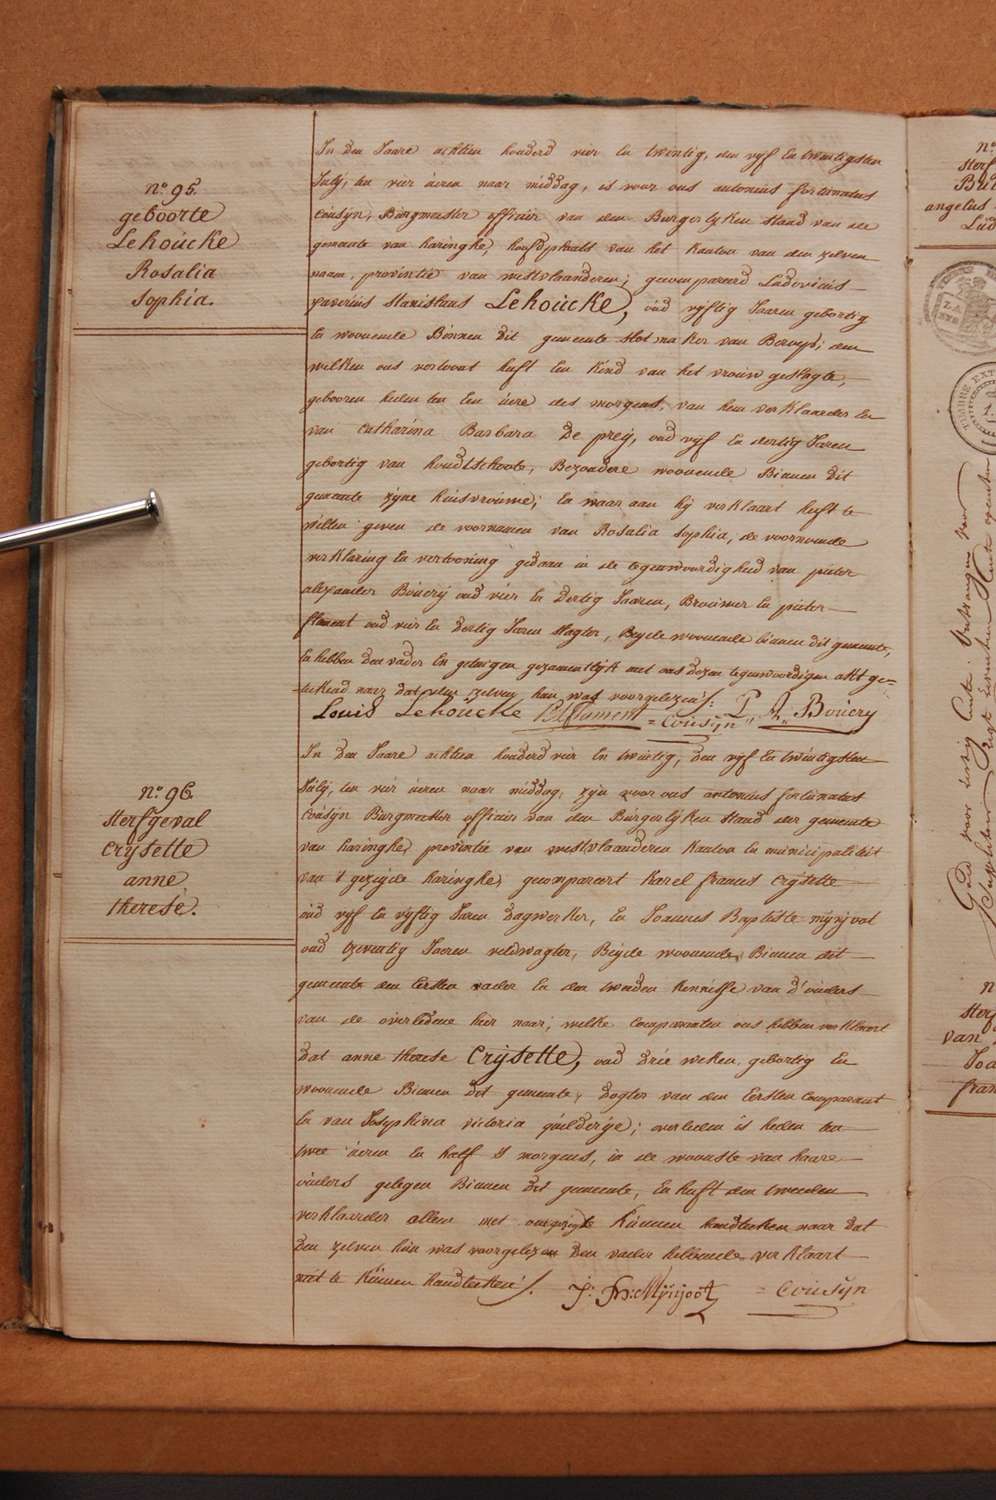 N.º 95.
geboorte
Lehoücke
Rosalia
Sophia.
In den Jaare achtien honderd vier En twintig, den vyf En twintigsten
Julÿ, ten vier üeren naar middag, is voor ons antonius fortunatus
Coüsÿn, Bürgmeester officier van den Burgerlyken staad van de
gemeente van haringhe, hoofdplaats van het Kanton van den zelven
naam, provintie van westvlaanderen; gecompareerd Ludovicus
xaverius stanislaus Lehoücke, oüd vyftig Jaaren gebortig
En woonende Binnen dit gemeente van Beroep; den
welken ons vertoont heeft Een Kind van het vrouw geslagte,
gebooren heden ten Een üere des morgens, van hem verklaarder En
van Catharina Barbara De preÿ, oud vyf En dertig Jaren
gebortig van hondtschoote, Bezondere woonende Binnen dit
gemeente zÿne huisvrouwe; En waar aan hÿ verklaart heeft te
willen geven de voornamen van Rosalia Sophia, de voornoemde
verklaring En vertooning gedaan in de tegenwoordigheid van pieter
alexander Boüerÿ oud vier En dertig Jaaren, Broüwer En pieter
flament oud vier En dertig Jaren slagter, Beyde woonende binnen dit gemeente,
En hebben den vader En getuigen gezamentlÿk met ons dezen tegenwoordigen akt ge-
=teekend naer dat den zelven hun was voorgelezen /:
Louis Lehoücke P. Flament = Coüsÿn „ P. A. Boüerÿ
N.º 96.
Sterfgeval
Crÿsette
anne
therese.
In den Jaare achtien honderd vier En twintig, den vyf En twintigsten
Julÿ, ten vier üeren naar middag, zÿn voor ons antonius fortunatus
Coüsÿn Bürgmeester officier van den Bürgerlÿken staad der gemeente
van haringhe, provintie van westvlaanderen Kanton En municipaliteit
van 't gezegde haringhe, gecompareert Karel francis Crÿsette
oüd vyf En vyftig Jaren dagwerker, En Joannes Baptiste
oud tzeventig Jaeren veldwagter, Beyde woonende, Binnen dit
gemeente den Eersten vader En den tweeden Kennisse van d'oüders
van de overledene hier naar; welke comparanten ons hebben verklaart
Dat anne therese Crÿsette, oud drie weken, gebortig En
woonende Binnen dit gemeente, dogter van den Eersten comparant
En van Josephina victoria; overleden is heden ten
twee üeren En half S morgens, in de woonste van haare
oüders gelegen Binnen dit gemeente, En heeft den tweeden
verklaarder alleen met ons Künnen handteken naar dat
Den zelven hün was voorgelezen Den vader hebbende verklaart
niet te Künnen handteeken /.
J: = Coüsÿn
N.º
Sterf
angelus
Lüd
N
Sterf
van
Joa
fran